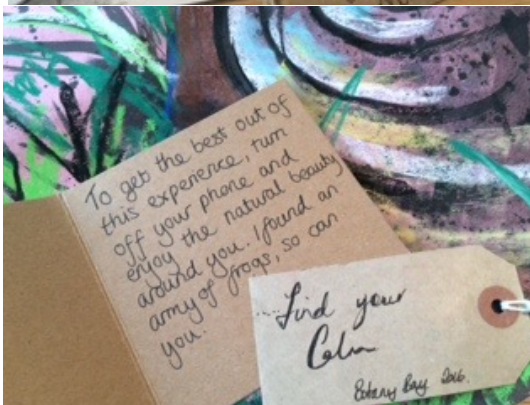 To get the best out of
this experience, turn
off your phone and
enjoy the natural beauty
around you. I found an
army of frogs, so can
you.
Find your
Calm
Botany Bay 2016.